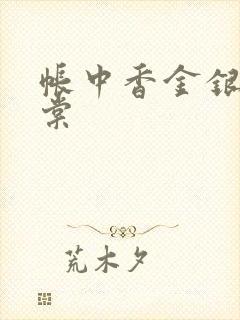 帐中香金银
棠
荒木夕